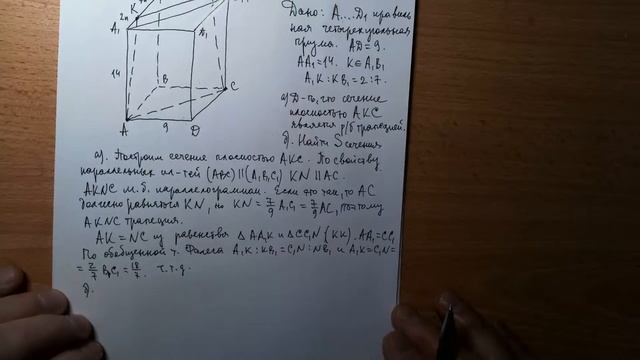 2n
K
A₁
D₁
14
B
C
A
9
D
Дано: A....D₁ правиль-
ная четырёхугольная
призма. AD=9.
AA₁=14. K∈A₁B₁
A₁K:KB₁=2:7.
а) Д-ть, что сечение
плоскостью AKC
является р/б трапецией.
б). Найти S сечения
а). Построим сечение плоскостью AKC. По свойству
параллельных пл-тей (ABC)||(A₁B₁C₁) KN || AC.
AKNC м.б. параллелограммом. Если это так, то AC
должно равняться KN, но KN = 7/9 A₁C₁ = 7/9 AC, поэтому
AKNC трапеция.
AK=NC из равенства △AA₁K и △CC₁N (KK). AA₁=CC₁
По обобщённой т. Фалеса A₁K:KB₁=C₁N:NB₁ и A₁K=C₁N=
= 2/7 B₁C₁ = 18/7. т.т.д.
б).